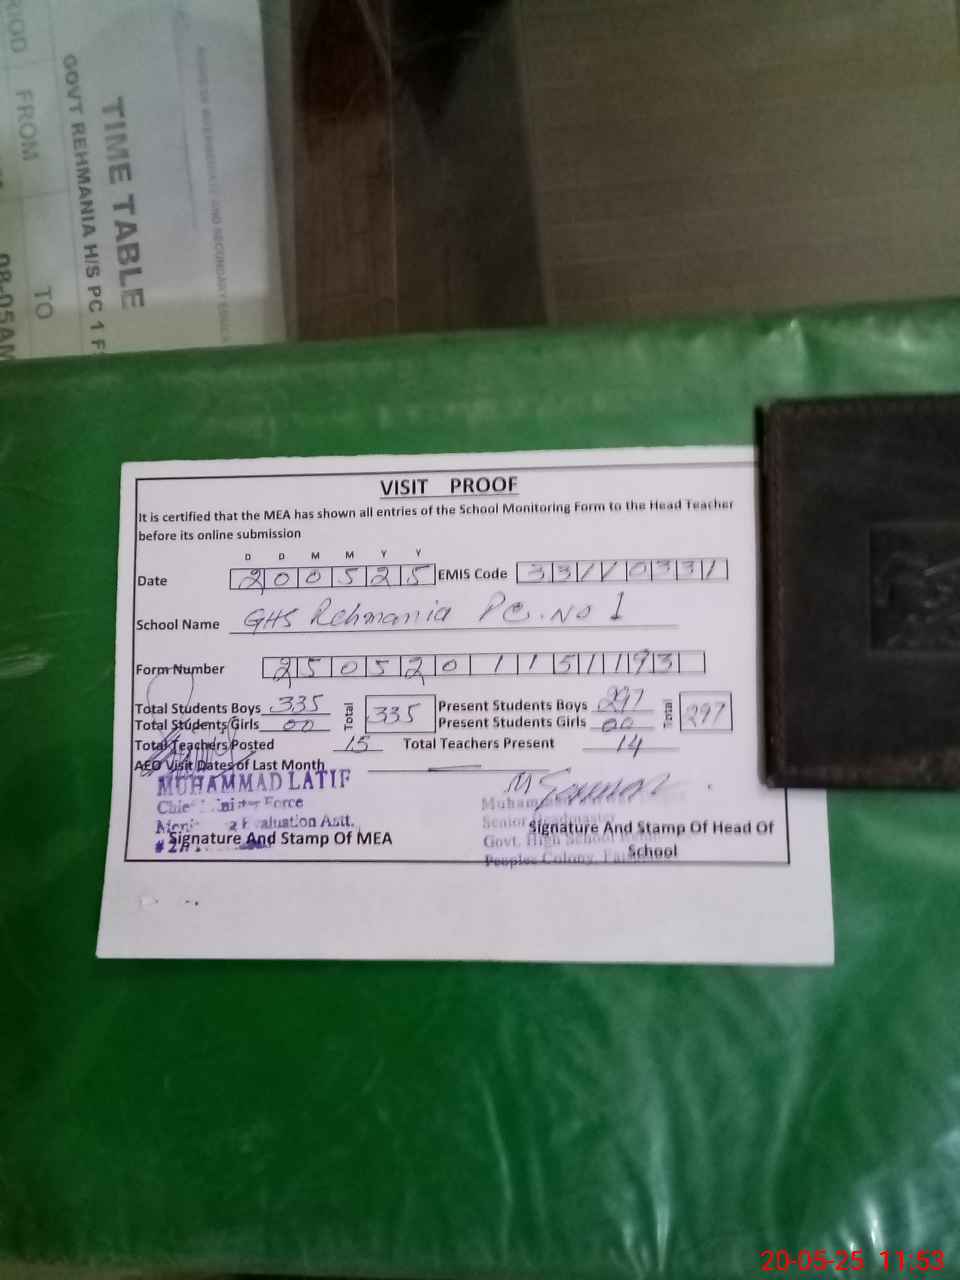 RIOD FROM TO
TIME TABLE
GOVT REHMANIA H/S PC 1 F
08-05AM
VISIT PROOF
It is certified that the MEA has shown all entries of the School Monitoring Form to the Head Teacher
before its online submission
D D M M Y Y
Date 200525 EMIS Code 33110331
School Name GHS Rehmania PC. No 1
Form Number 250520115193
Total Students Boys 335 Total 335 Present Students Boys 297 Total 297
Total Students Girls 00 Present Students Girls 00
Total Teachers Posted 15 Total Teachers Present 14
AEO Visit Dates of Last Month
MUHAMMAD LATIF
Force
Evaluation Astt.
Signature And Stamp Of MEA
Senior
Govt. High School
Peoples Colony,
Signature And Stamp Of Head Of
School
20-05-25 11:53